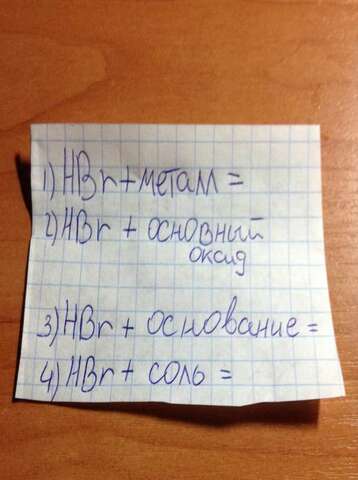 1) HBr + металл =
2) HBr + основный
оксид
3) HBr + основание =
4) HBr + соль =